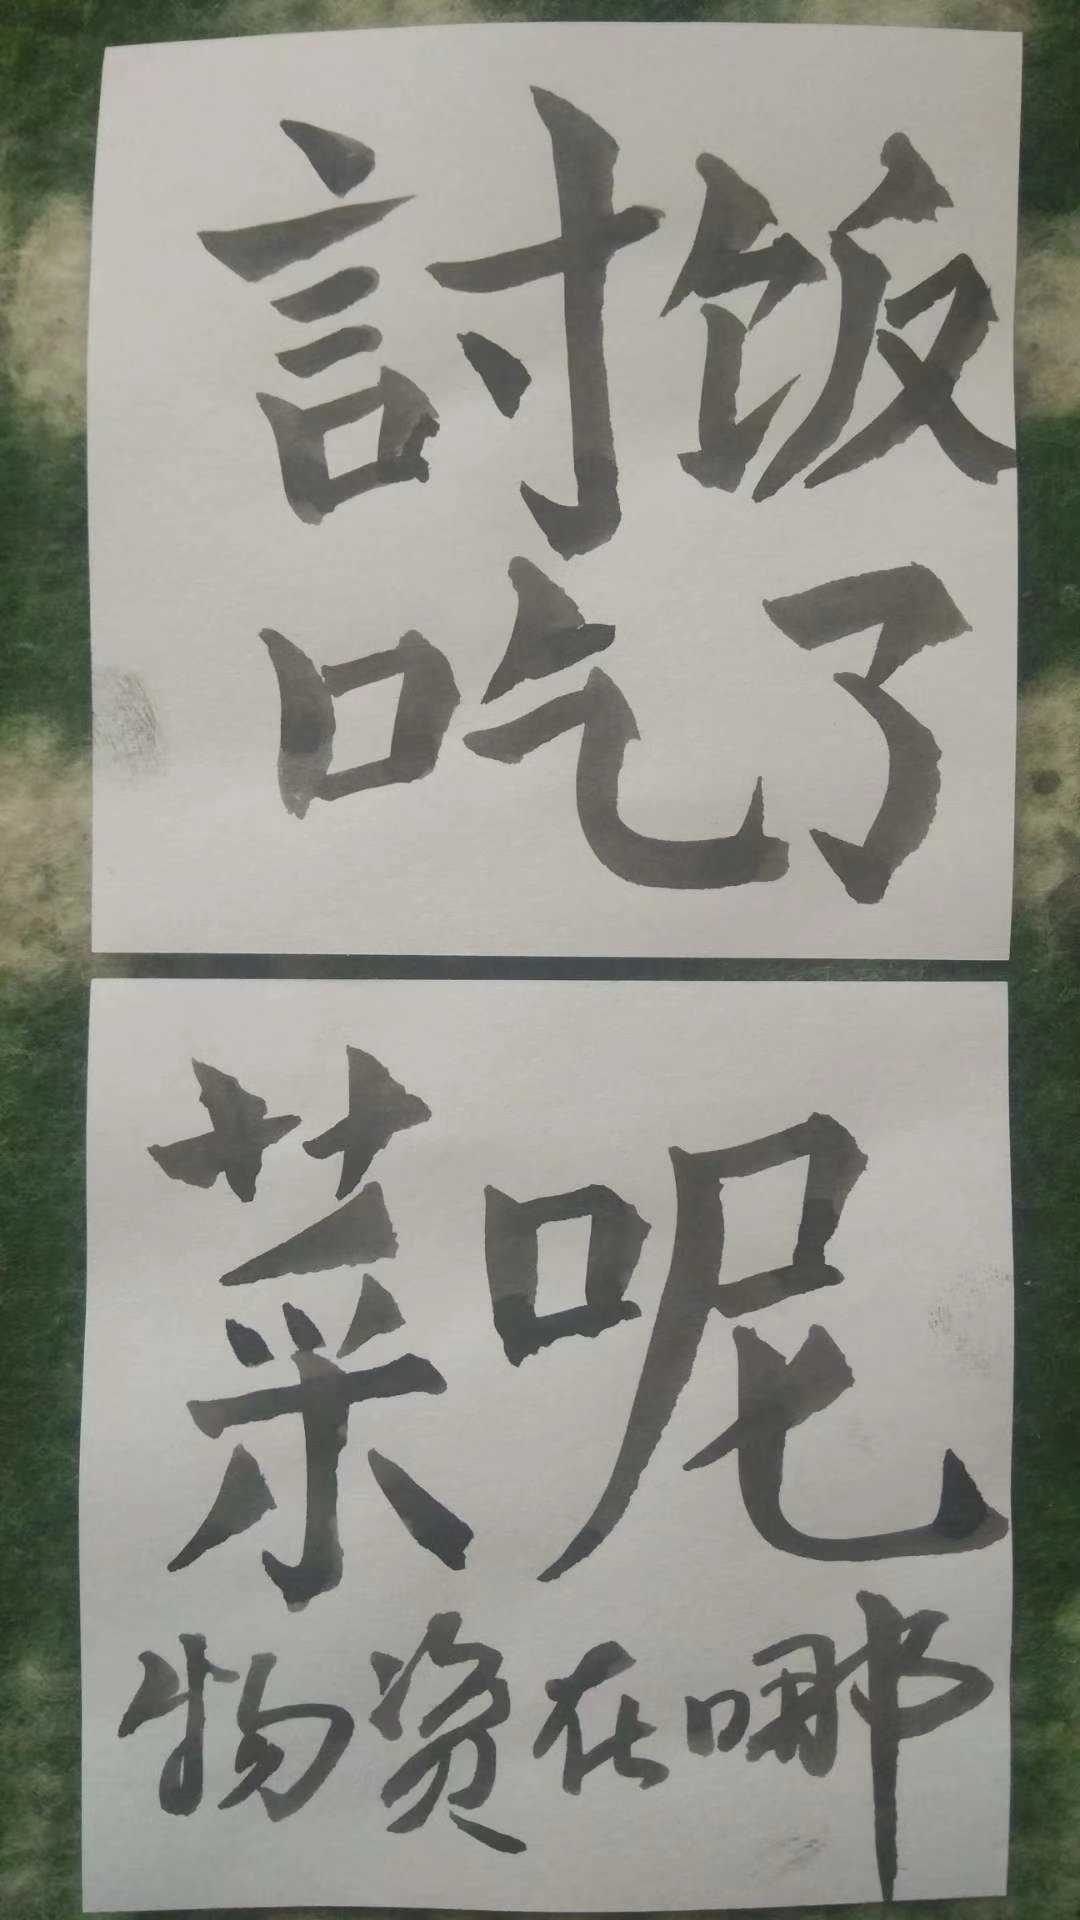 討饭
吃了
菜呢
物资在哪